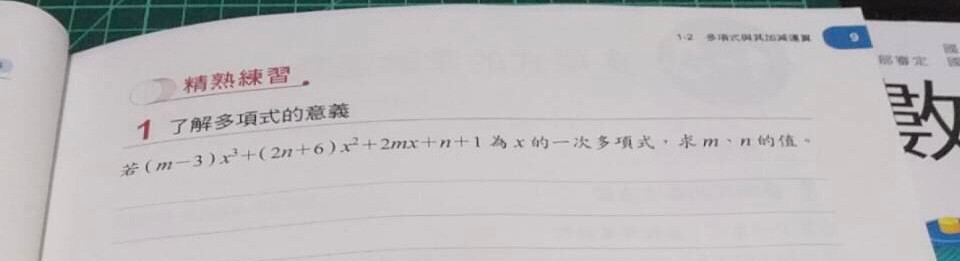 1-2 多項式與其加減運算 9
精熟練習
1 了解多項式的意義
若(m－3)x³+(2n+6)x²+2mx+n+1為x的一次多項式，求m、n的值。
部審定 國
國
數